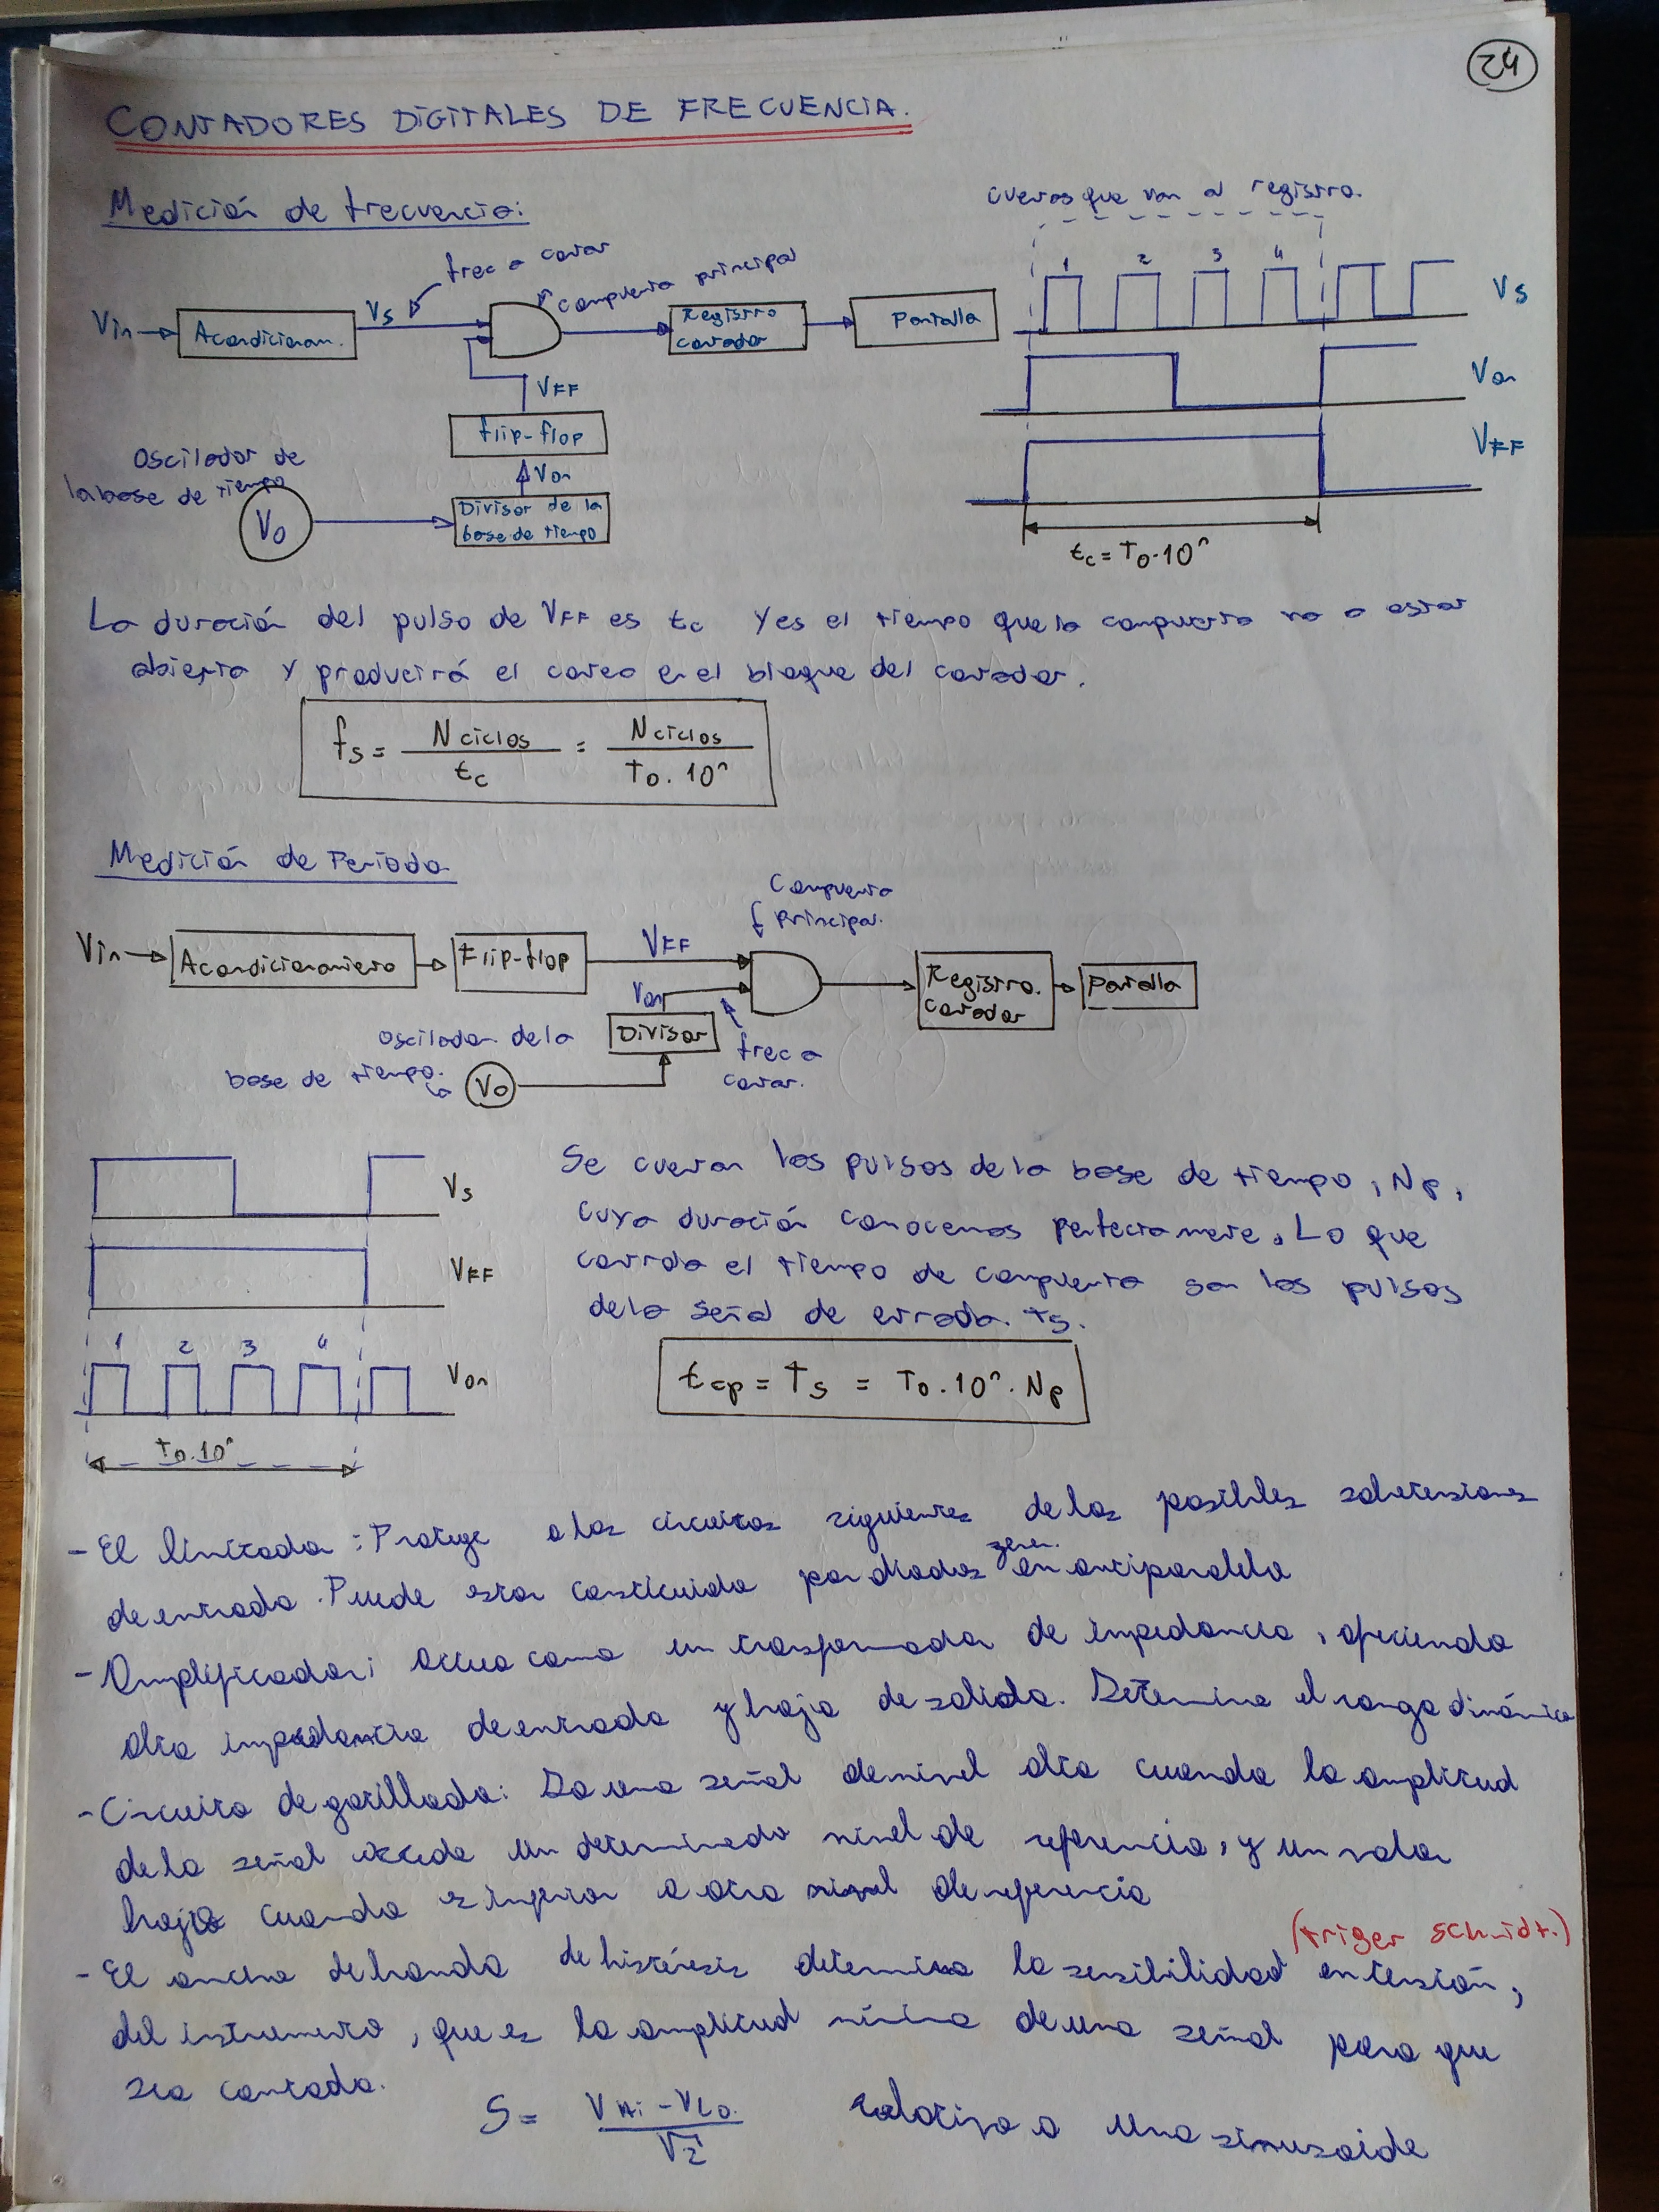 24
CONTADORES DIGITALES DE FRECUENCIA.
Medición de frecuencia:
cuentas que van al registro.
frec a contar
compuerta principal
1 2 3 4
Vin
Acondicionam.
Vs
Registro
contador
Pantalla
Vs
VFF
Von
flip-flop
VFF
Oscilador de
la base de tiempo
Von
Vo
Divisor de la
base de tiempo
tc = To·10^n
La duración del pulso de VFF es tc y es el tiempo que la compuerta va a estar
abierta y producirá el conteo en el bloque del contador.
fs = N ciclos / tc = N ciclos / To · 10^n
Medición de Periodo
Compuerta
principal.
Vin
Acondicionamiento
Flip-flop
VFF
Registro.
contador
Pantalla
Von
Divisor
oscilador de la
base de tiempo.
Vo
frec a
contar.
Vs
VFF
1 2 3 4
Von
To·10^n
Se cuentan los pulsos de la base de tiempo, Np,
cuya duración conocemos perfectamente. Lo que
controla el tiempo de compuerta son los pulsos
de la señal de entrada. Ts.
tcp = Ts = To·10^n·Np
- El limitador: Protege a los circuitos siguientes de las posibles sobretensiones
de entrada. Puede estar constituido por diodos zener en antiparalelo
- Amplificador: actua como un transformador de impedancia, ofreciendo
alta impedancia de entrada y baja de salida. Determina el rango dinámico
- Circuito de gatillado: Da una señal de nivel alto cuando la amplitud
de la señal excede un determinado nivel de referencia, y un valor
bajo cuando es inferior a otro nivel de referencia
(triger schmidt.)
- El ancho de banda de histéresis determina la sensibilidad en tensión,
del instrumento, que es la amplitud mínima de una señal para que
sea contada.
S = VHi - VLo. / √2 relativa a una sinusoide